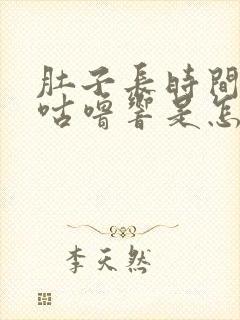 肚子長時間
咕嚕響是怎
李天然